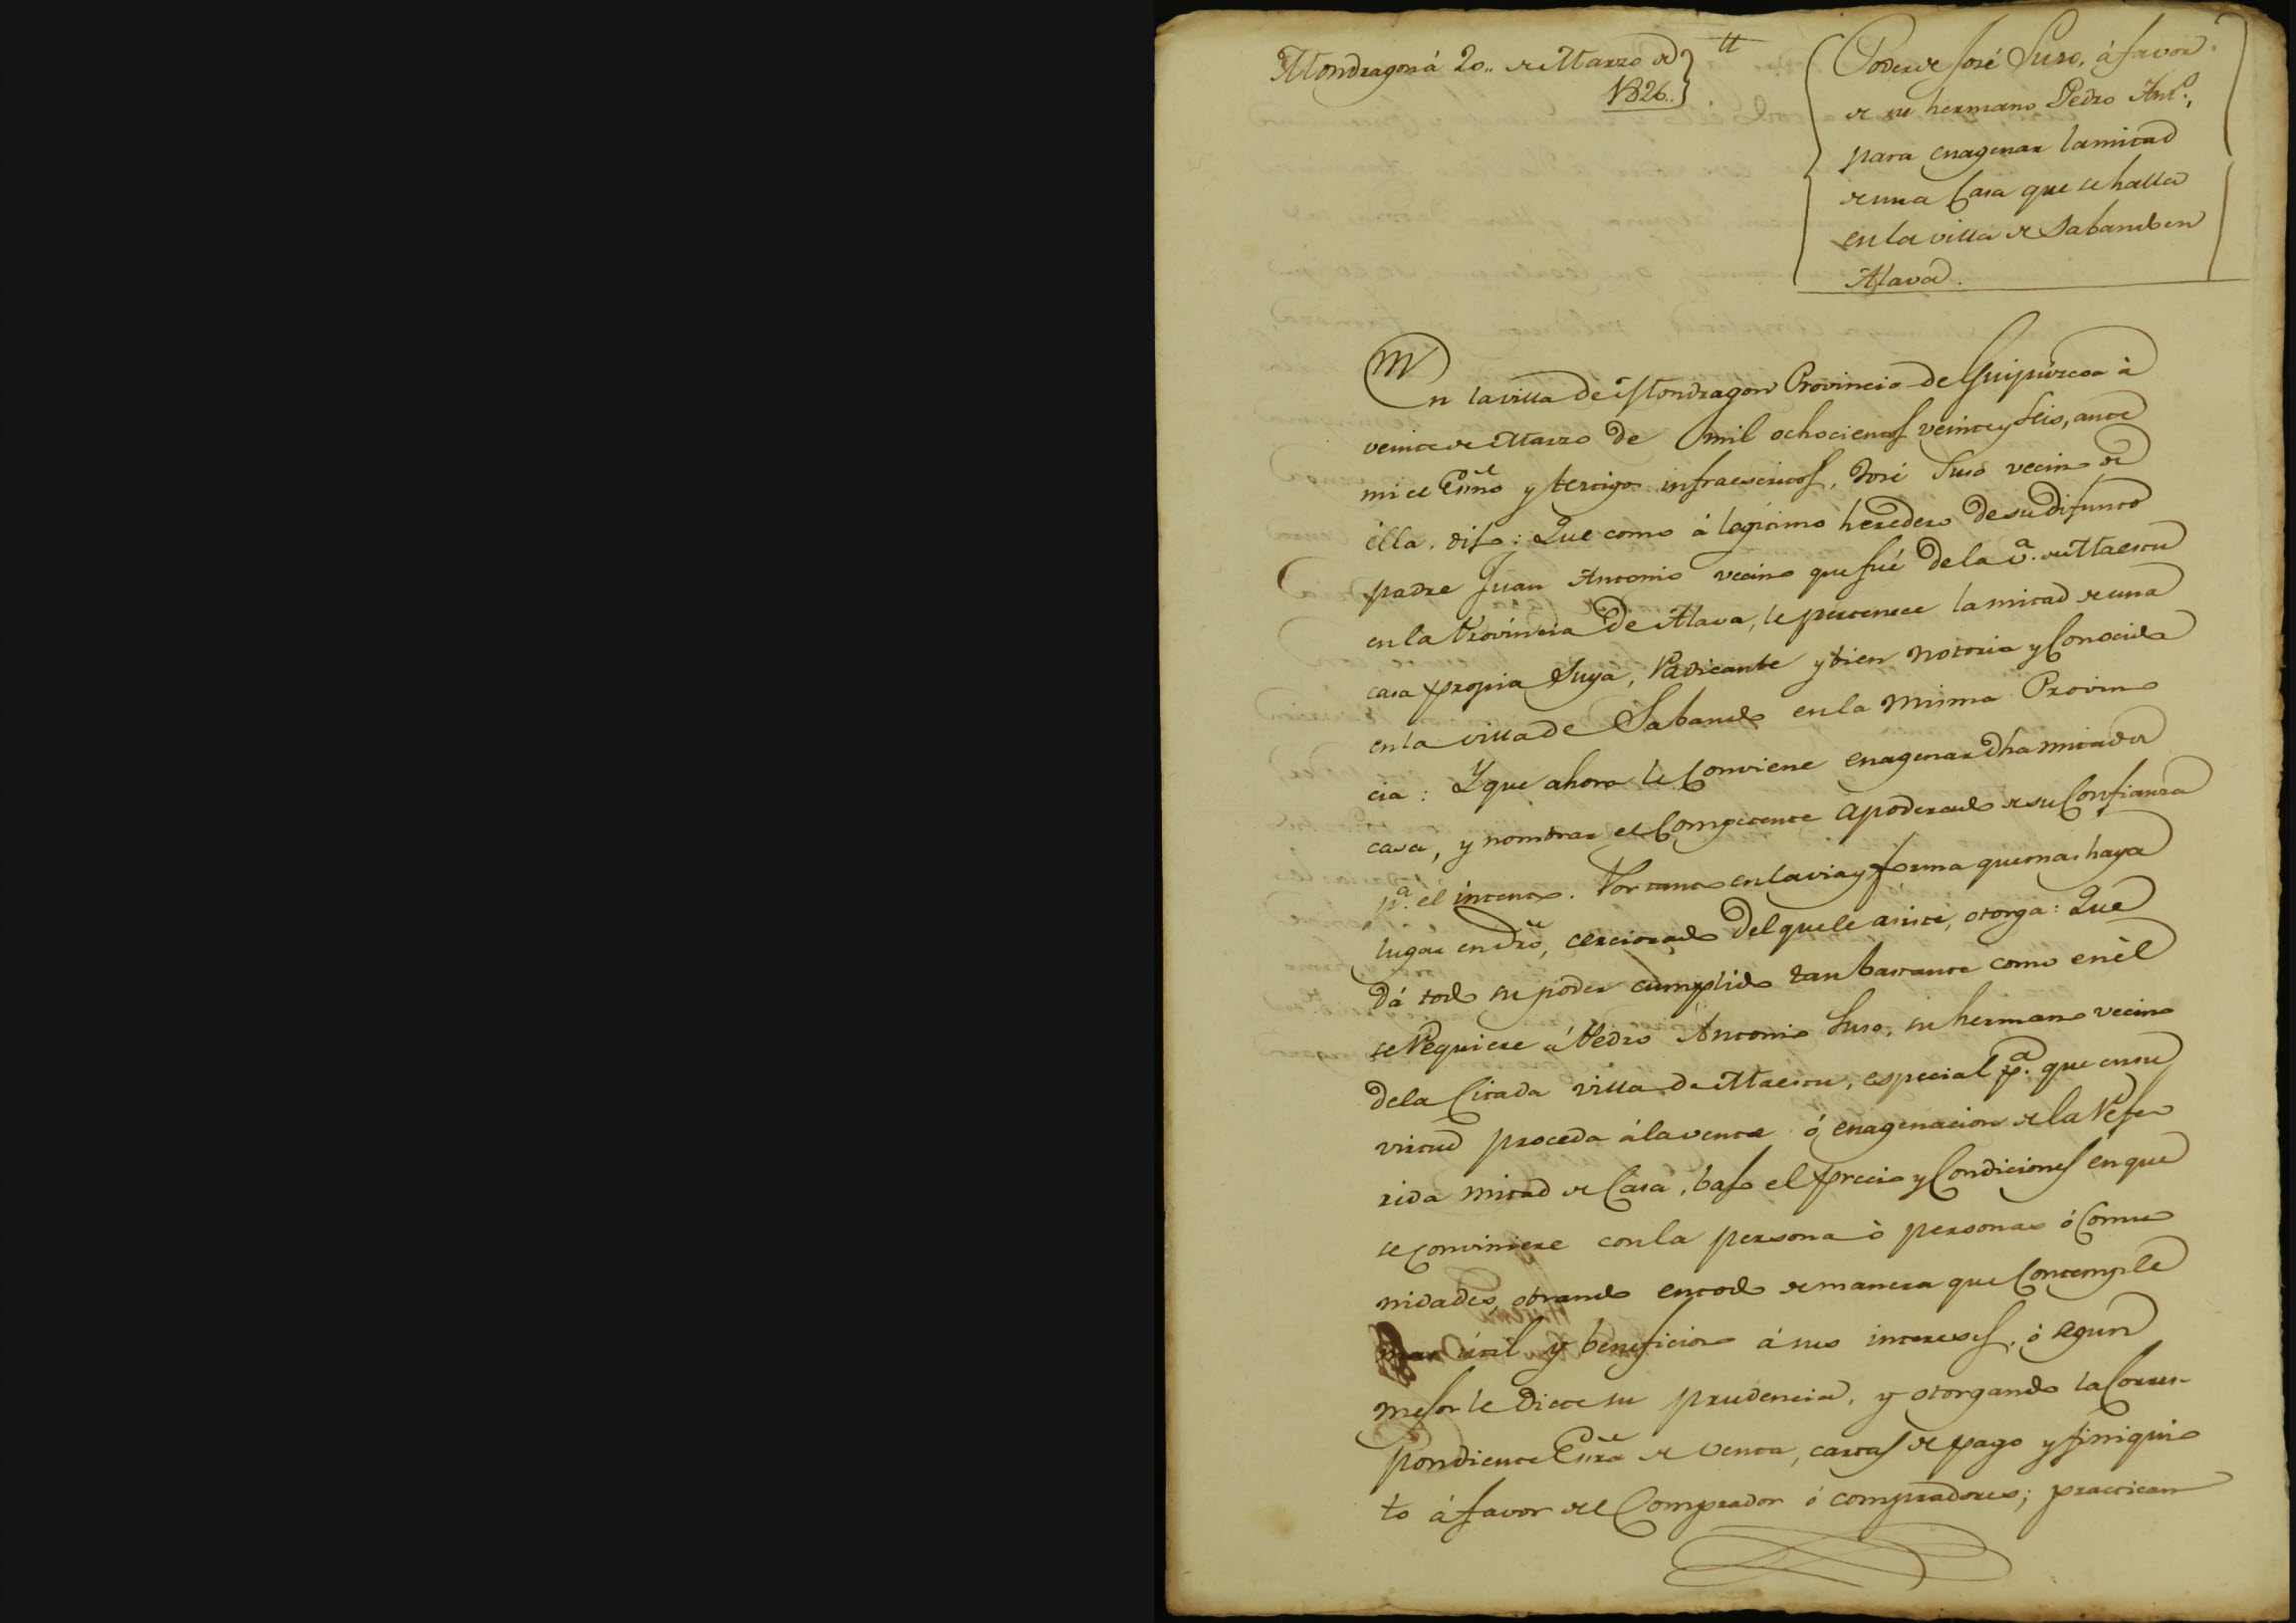 Mondragon á 20,, de Marzo de
1826..
Poder de José Suso, á favor
de su hermano Pedro Ant.º,
para enagenar la mitad
de una Casa que se halla
en la villa de Sabando en
Alava.
En la villa de Mondragon Provincia de Guipúzcoa á
veinte de Marzo de mil ochocientos veinte y seis, ante
mi el Essno y testigos infraescritos, José Suso vecino de
élla, dijo: Que como á legítimo heredero de su difunto
padre Juan Antonio vecino que fué de la v.ª de Maestu
en la Provincia de Alava, le pertenece la mitad de una
casa propia suya, Radicante y bien notoria y Conocida
en la villa de Sabando en la misma Provin
cia: Y que ahora le Conviene enagenar dha mitad de
casa, y nombrar el Competente apoderado de su Confianza
p.ª el intento. Por tanto en la via y forma que mas haya
lugar en dro, cerciorado del que le asiste, otorga: Que
dá todo su poder cumplido tan bastante como en él
se Requiere á Pedro Antonio Suso, su hermano vecino
de la Citada villa de Maestu, especial p.ª que en su
virtud proceda á la venta ó enagenacion de la Refe
rida mitad de Casa, bajo el precio y Condiciones en que
se conviniere con la persona ò personas ó Comu
nidades, obrando en todo de manera que Contemple
mas útil y beneficioso á sus intereses, ó segun
mejor le dicte su prudencia, y otorgando la Corres-
pondiente Essra de venta, cartas de pago y finiqui
to á favor del Comprador ó compradores; practican